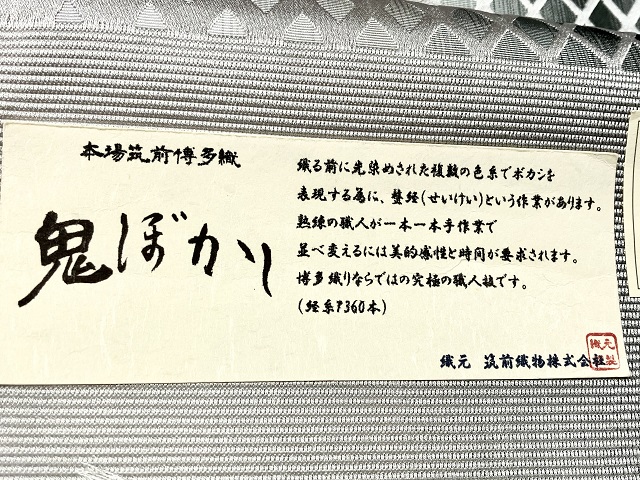 本場筑前博多織
鬼ぼかし
織る前に先染めされた複数の色糸でボカシを
表現する為に、整経(せいけい)という作業があります。
熟練の職人が一本一本手作業で
並べ変えるには美的感性と時間が要求されます。
博多織りならではの究極の職人技です。
(経糸7360本)
織元 筑前織物株式会社
織元
製